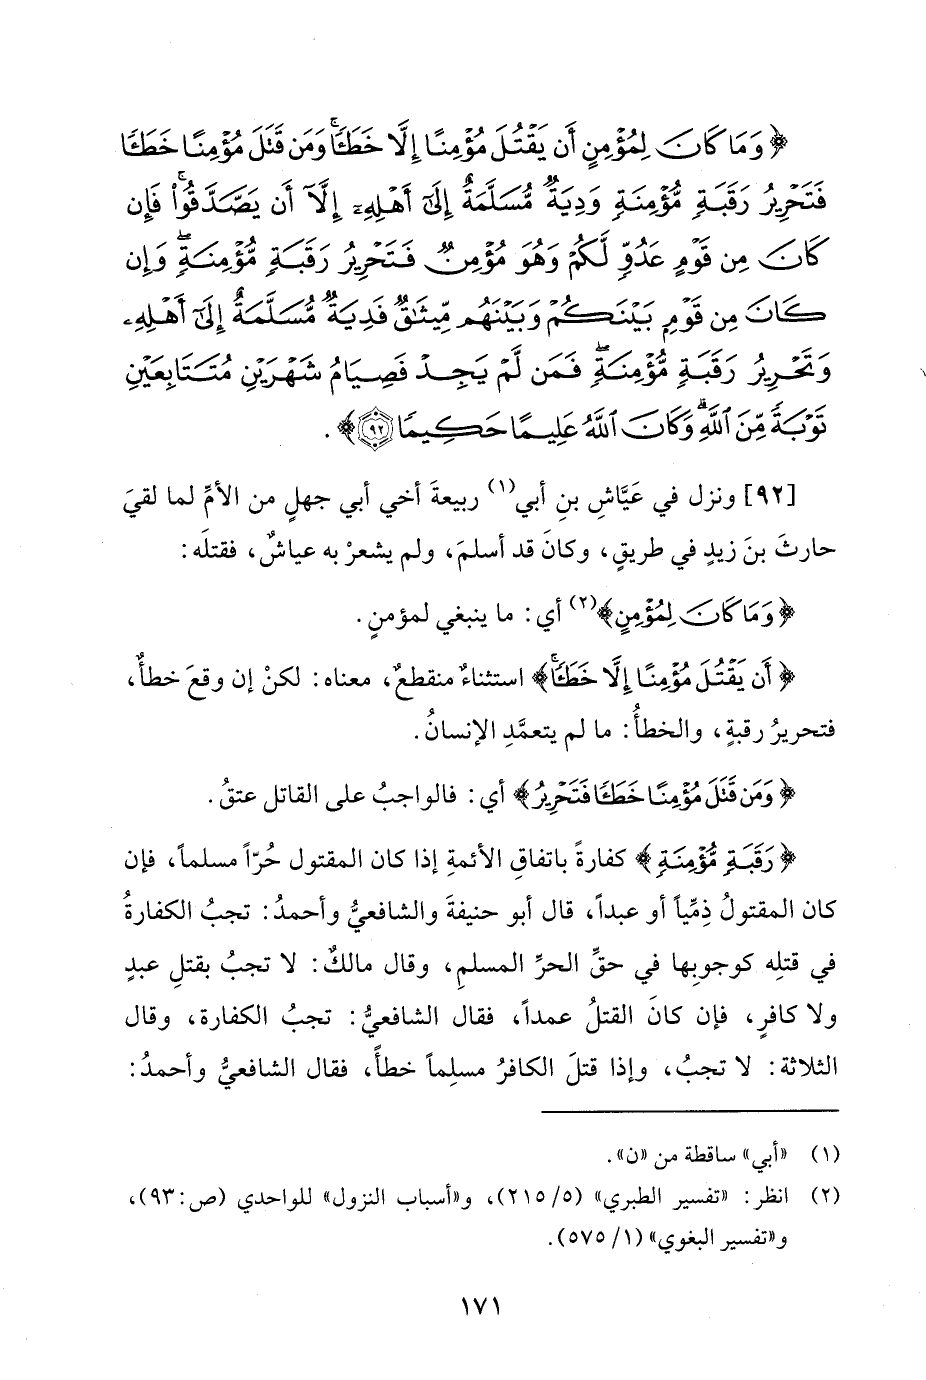 ﴿وَمَا كَانَ لِمُؤْمِنٍ أَن يَقْتُلَ مُؤْمِنًا إِلَّا خَطَـًٔا ۚ وَمَن قَتَلَ مُؤْمِنًا خَطَـًٔا
فَتَحْرِيرُ رَقَبَةٍ مُّؤْمِنَةٍ وَدِيَةٌ مُّسَلَّمَةٌ إِلَىٰٓ أَهْلِهِۦٓ إِلَّآ أَن يَصَّدَّقُوا۟ ۚ فَإِن
كَانَ مِن قَوْمٍ عَدُوٍّ لَّكُمْ وَهُوَ مُؤْمِنٌ فَتَحْرِيرُ رَقَبَةٍ مُّؤْمِنَةٍ ۖ وَإِن
كَانَ مِن قَوْمٍۭ بَيْنَكُمْ وَبَيْنَهُم مِّيثَـٰقٌ فَدِيَةٌ مُّسَلَّمَةٌ إِلَىٰٓ أَهْلِهِۦ
وَتَحْرِيرُ رَقَبَةٍ مُّؤْمِنَةٍ ۖ فَمَن لَّمْ يَجِدْ فَصِيَامُ شَهْرَيْنِ مُتَتَابِعَيْنِ
تَوْبَةً مِّنَ ٱللَّهِ ۗ وَكَانَ ٱللَّهُ عَلِيمًا حَكِيمًا ٩٢﴾.
[٩٢] ونزل في عَيَّاشِ بنِ أبي(١) ربيعةَ أخي أبي جهلٍ من الأمِّ لما لقيَ
حارثَ بنَ زيدٍ في طريقٍ، وكانَ قد أسلمَ، ولم يشعرْ به عياشٌ، فقتلَه:
﴿وَمَا كَانَ لِمُؤْمِنٍ﴾(٢) أي: ما ينبغي لمؤمنٍ.
﴿أَن يَقْتُلَ مُؤْمِنًا إِلَّا خَطَـًٔا ۚ﴾ استثناءٌ منقطعٌ، معناه: لكنْ إن وقعَ خطأٌ،
فتحريرُ رقبةٍ، والخطأُ: ما لم يتعمَّدِ الإنسانُ.
﴿وَمَن قَتَلَ مُؤْمِنًا خَطَـًٔا فَتَحْرِيرُ﴾ أي: فالواجبُ على القاتل عتقُ.
﴿رَقَبَةٍ مُّؤْمِنَةٍ﴾ كفارةً باتفاقِ الأئمةِ إذا كان المقتول حُرّاً مسلماً، فإن
كان المقتولُ ذِمِّياً أو عبداً، قال أبو حنيفةَ والشافعيُّ وأحمدُ: تجبُ الكفارةُ
في قتلِه كوجوبِها في حقِّ الحرِّ المسلمِ، وقال مالكٌ: لا تجبُ بقتلِ عبدٍ
ولا كافرٍ، فإن كانَ القتلُ عمداً، فقال الشافعيُّ: تجبُ الكفارة، وقال
الثلاثة: لا تجبُ، وإذا قتلَ الكافرُ مسلِماً خطأً، فقال الشافعيُّ وأحمدُ:
(١) «أبي» ساقطة من «ن».
(٢) انظر: «تفسير الطبري» (٥/ ٢١٥)، و«أسباب النزول» للواحدي (ص: ٩٣)،
و«تفسير البغوي» (١/ ٥٧٥).
١٧١